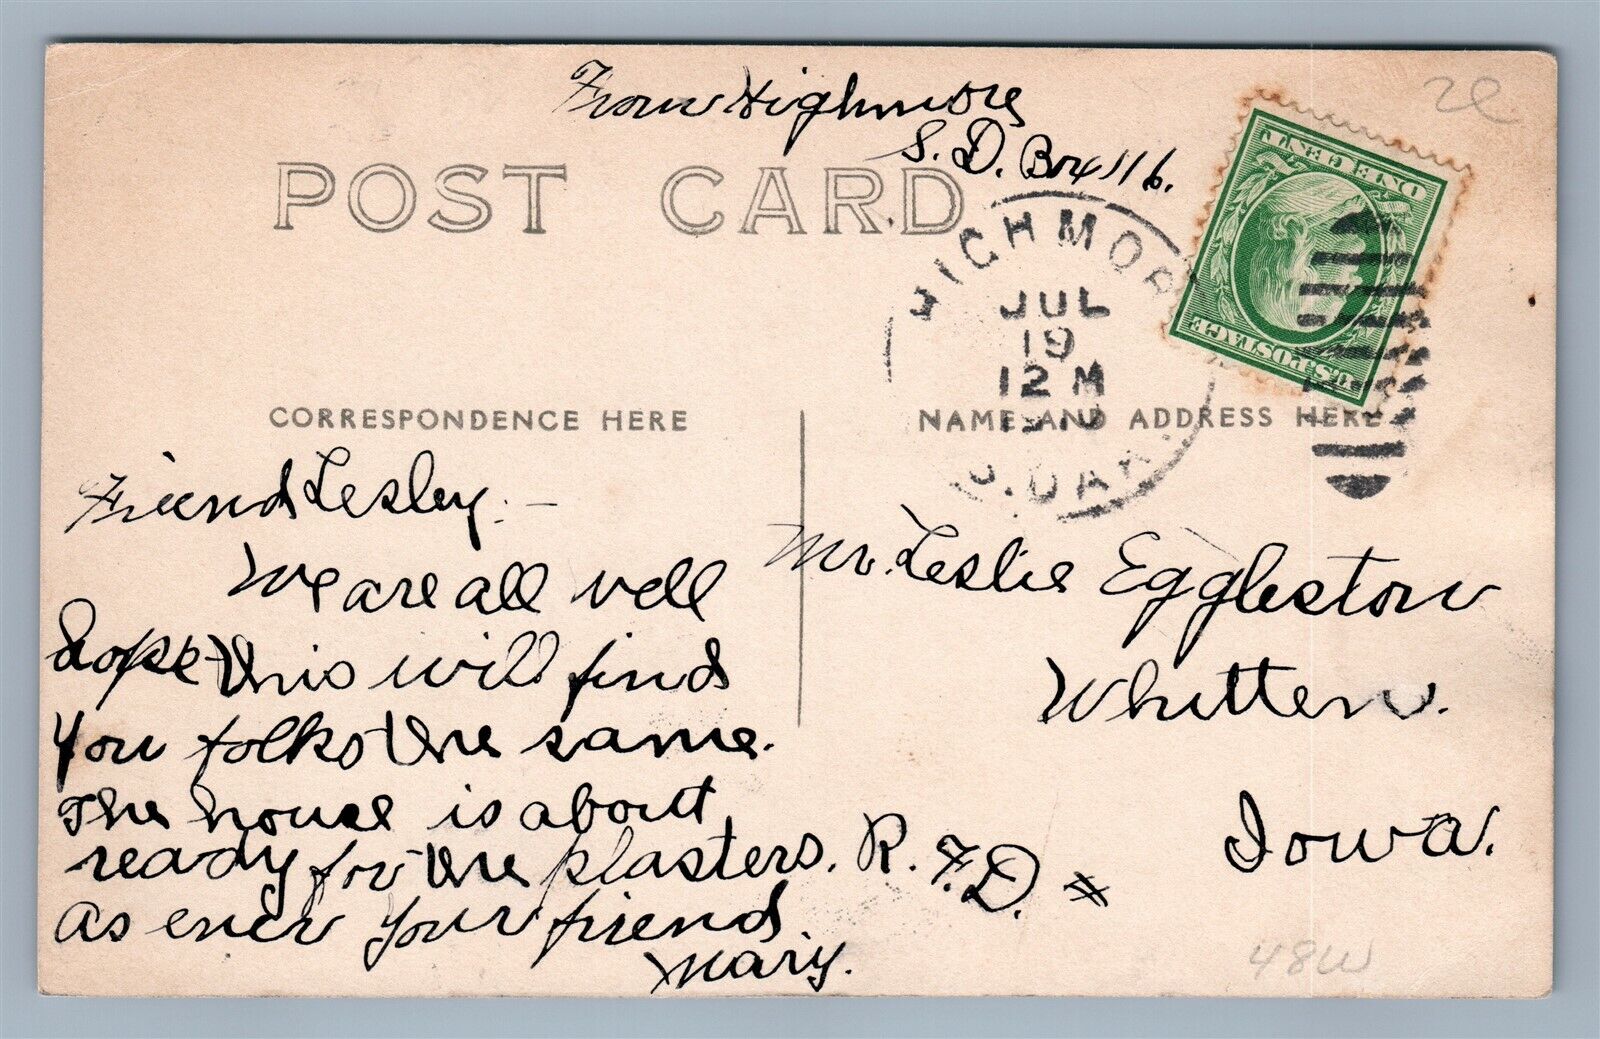 From Highmore
S. D. Box 116.
2e
POST CARD
ONE CENT
U.S. POSTAGE
HIGHMOR
JUL
19
12 M
S. DAK.
CORRESPONDENCE HERE
NAME AND ADDRESS HERE
Friend Lesley:—
We are all well
hope this will find
you folks the same.
The house is about
ready for the plasters.
As ever your friend
Mary.
Mr. Leslie Eggleston
Whitten.
Iowa.
R. F. D. #
48W